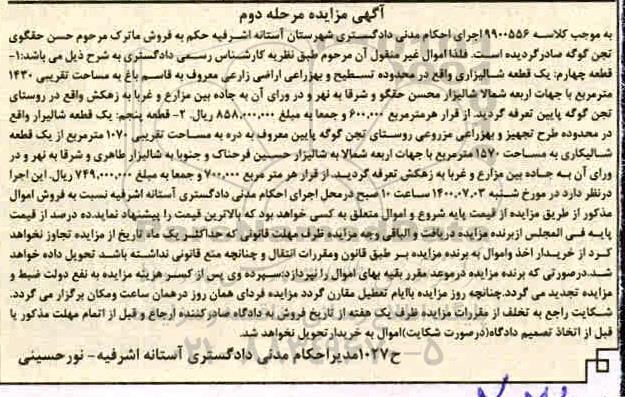 آگهی مزایده مرحله دوم
به موجب کلاسه ۹۹۰۰۵۵۶ اجرای احکام مدنی دادگستری شهرستان آستانه اشرفیه حکم به فروش ماترک مرحوم حسن حقگوی
تجن گوگه صادرگردیده است. فلذا اموال غیر منقول آن مرحوم طبق نظریه کارشناس رسمی دادگستری به شرح ذیل می باشد:۱-
قطعه چهارم: یک قطعه شالیزاری واقع در محدوده تسطیح و بهزراعی اراضی زارعی معروف به قاسم باغ به مساحت تقریبی ۱۴۳۰
مترمربع با جهات اربعه شمالا شالیزار محسن حقگو و شرقا به نهر و در ورای آن به جاده بین مزارع و غربا به زهکش واقع در روستای
تجن گوگه پایین تعرفه گردید. از قرار هرمترمربع ۶۰۰,۰۰۰ و جمعا به مبلغ ۸۵۸,۰۰۰,۰۰۰ ریال. ۲- قطعه پنجم: یک قطعه شالیزار واقع
در محدوده طرح تجهیز و بهزراعی مزروعی روستای تجن گوگه پایین معروف به دره به مساحت تقریبی ۱۰۷۰ مترمربع از یک قطعه
شالیکاری به مساحت ۱۵۷۰ مترمربع با جهات اربعه شمالا به شالیزار حسین فرحناک و جنوبا به شالیزار طاهری و شرقا به نهر و در
ورای آن به جاده بین مزارع و غربا به زهکش تعرفه گردید. از قرار هر متر مربع ۷۰۰,۰۰۰ و جمعا به مبلغ ۷۴۹,۰۰۰,۰۰۰ ریال. این اجرا
درنظر دارد در مورخ شنبه ۱۴۰۰.۰۷.۰۳ ساعت ۱۰ صبح درمحل اجرای احکام مدنی دادگستری آستانه اشرفیه نسبت به فروش اموال
مذکور از طریق مزایده از قیمت پایه شروع و اموال متعلق به کسی خواهد بود که بالاترین قیمت را پیشنهاد نماید.ده درصد از قیمت
پایه فی المجلس ازبرنده مزایده دریافت و الباقی وجه مزایده ظرف مهلت قانونی که حداکثر یک ماه تاریخ از مزایده تجاوز نخواهد
کرد از خریدار اخذ واموال به برنده مزایده بر طبق قانون ومقررات انتقال و چنانچه منع قانونی نداشته باشد تحویل داده خواهد
شد.درصورتی که برنده مزایده درموعد مقرر بقیه بهای اموال را نپردازد:سپرده وی پس از کسر هزینه مزایده به نفع دولت ضبط و
مزایده تجدید می گردد.چنانچه روز مزایده باایام تعطیل مقارن گردد مزایده فردای همان روز درهمان ساعت ومکان برگزار می گردد.
شکایت راجع به تخلف از مقررات مزایده ظرف یک هفته از تاریخ فروش به دادگاه صادرکننده ارجاع و قبل از اتمام مهلت مذکور یا
قبل از اتخاذ تصمیم دادگاه(درصورت شکایت)اموال به خریدار تحویل نخواهد شد.
ح۱۰۲۷ مدیر احکام مدنی دادگستری آستانه اشرفیه- نورحسینی